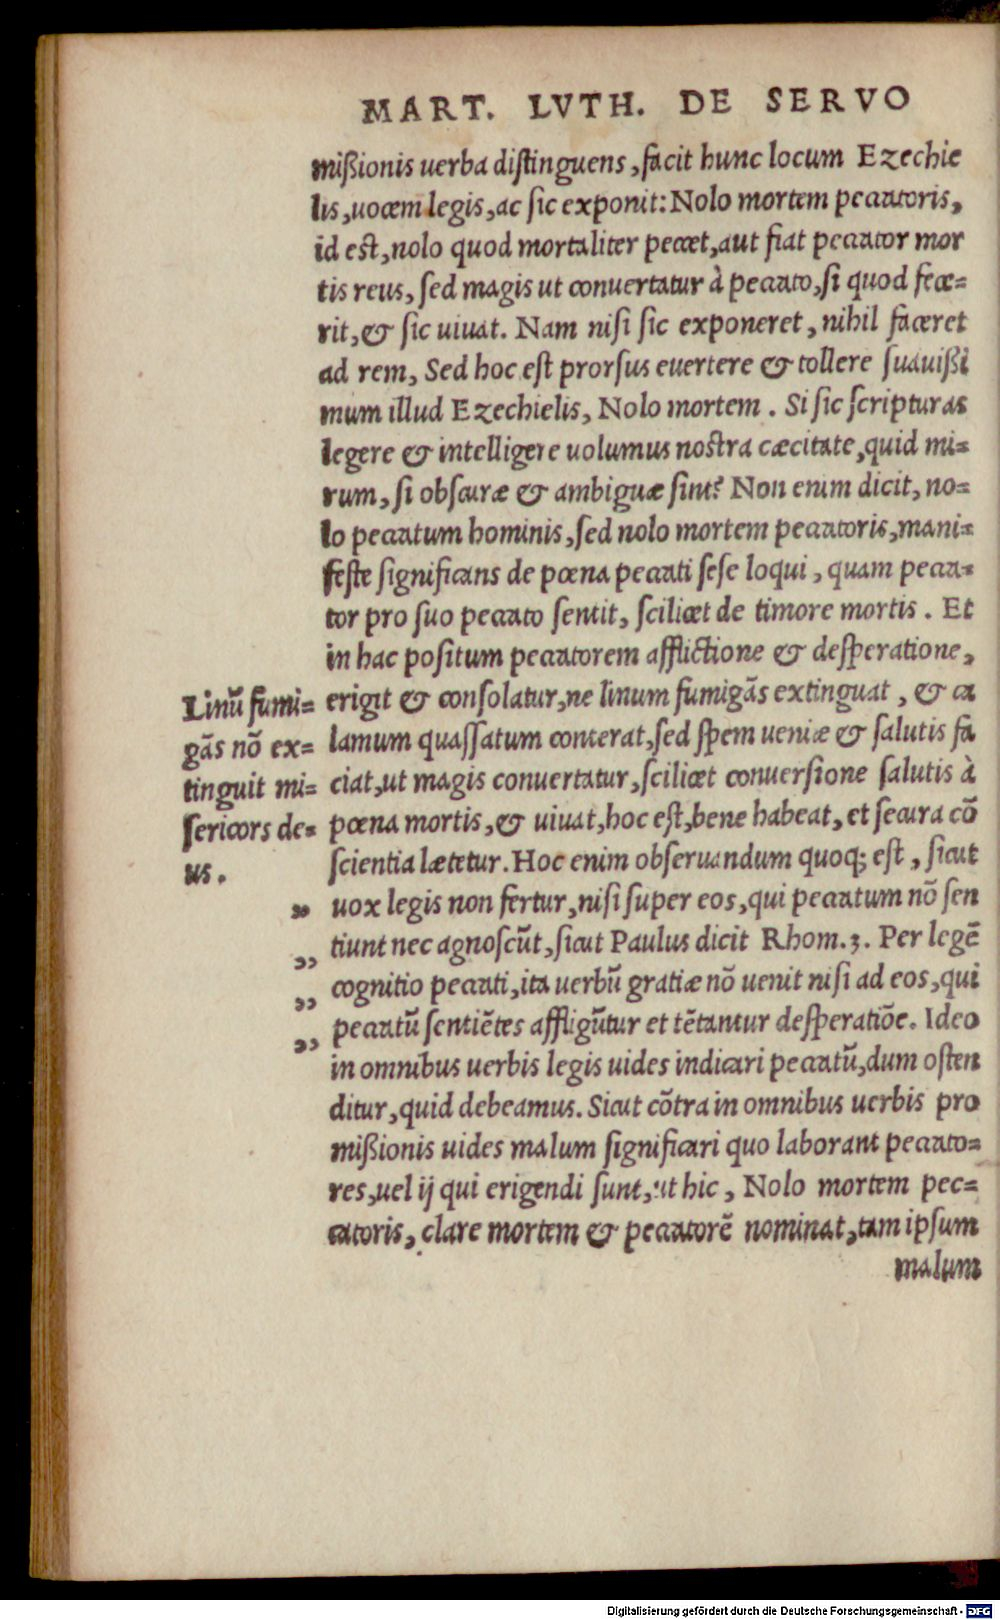 MART. LVTH. DE SERVO
mißionis uerba distinguens, facit hunc locum Ezechie
lis, uocem legis, ac sic exponit: Nolo mortem peccatoris,
id est, nolo quod mortaliter peccet, aut fiat peccator mor
tis reus, sed magis ut conuertatur à peccato, si quod fece=
rit, & sic uiuat. Nam nisi sic exponeret, nihil faceret
ad rem, Sed hoc est prorsus euertere & tollere suauißi
mum illud Ezechielis, Nolo mortem. Si sic scripturas
legere & intelligere uolumus nostra cæcitate, quid mi=
rum, si obscuræ & ambiguæ sint? Non enim dicit, no=
lo peccatum hominis, sed nolo mortem peccatoris, mani=
feste significans de pœna peccati sese loqui, quam pecca=
tor pro suo peccato sentit, scilicet de timore mortis. Et
in hac positum peccatorem afflictione & desperatione,
erigit & consolatur, ne linum fumigãs extinguat, & ca
lamum quassatum conterat, sed spem ueniæ & salutis fa
ciat, ut magis conuertatur, scilicet conuersione salutis à
pœna mortis, & uiuat, hoc est, bene habeat, et secura cõ
scientia lætetur. Hoc enim obseruandum quoq; est, sicut
uox legis non fertur, nisi super eos, qui peccatum nõ sen
tiunt nec agnoscũt, sicut Paulus dicit Rhom. 3. Per legẽ
cognitio peccati, ita uerbũ gratiæ nõ uenit nisi ad eos, qui
peccatũ sentiẽtes affligũtur et tẽtantur desperatiõe. Ideo
in omnibus uerbis legis uides indicari peccatũ, dum osten
ditur, quid debeamus. Sicut cõtra in omnibus uerbis pro
mißionis uides malum significari quo laborant peccato=
res, uel ij qui erigendi sunt, ut hic, Nolo mortem pec=
catoris, clare mortem & peccatorẽ nominat, tam ipsum
malum
Linũ fumi=
gãs nõ ex=
tinguit mi=
sericors de=
us.
,,
,,
,,
,,
Digitalisierung gefördert durch die Deutsche Forschungsgemeinschaft - DFG